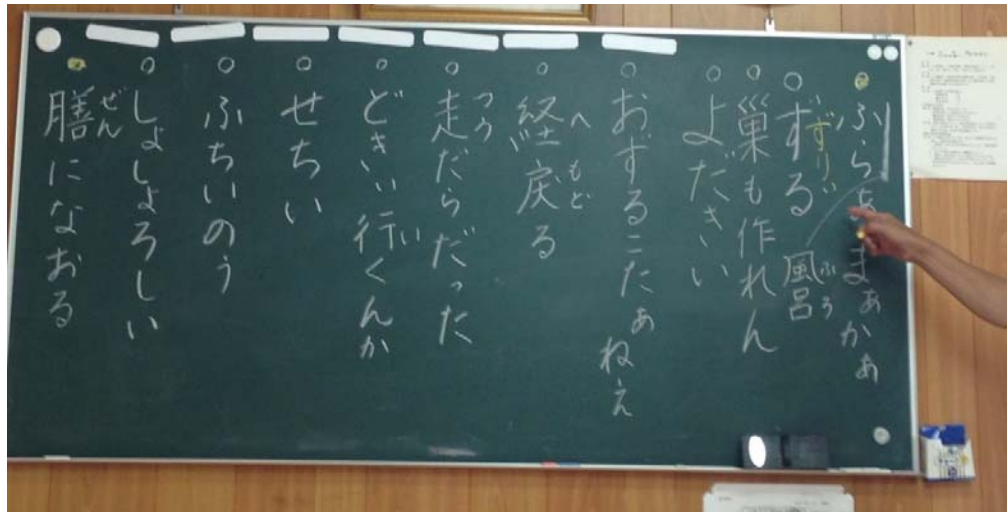 ふらぁまぁかぁ
ずる 風呂
ずりい
ふろ
巣も作れん
よだきい
おずるこたぁねえ
経戻る
へもど
走だらだった
つう
どきい行くんか
い
せちい
ふちいのう
しょしょろしい
膳になおる
ぜん